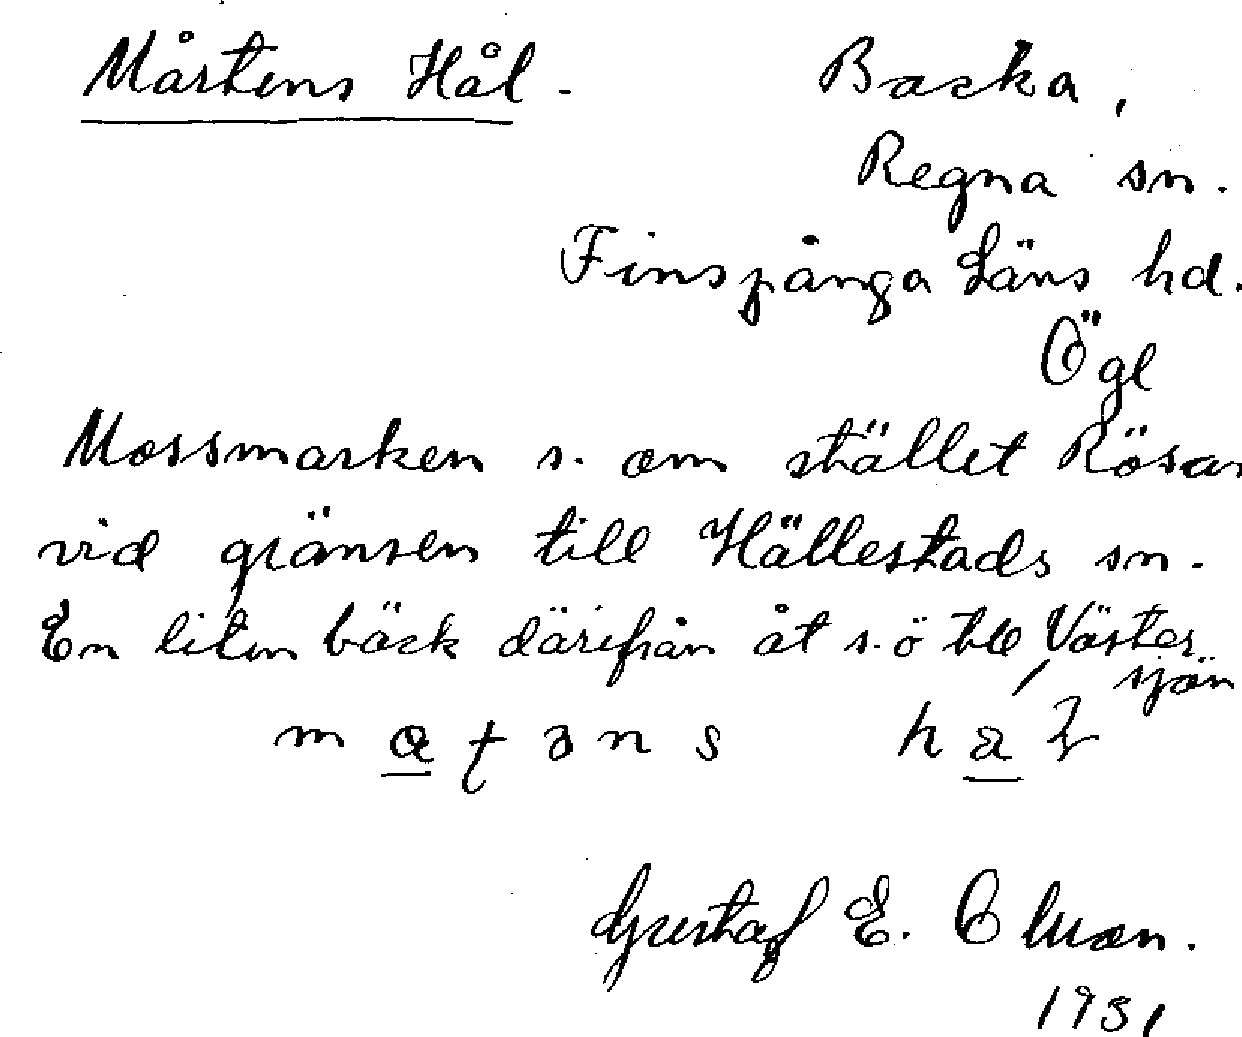 Mårtens Hål. Backa,
Regna sn.
Finspånga Läns hd.
Ögl
Mossmarken s. om stället Rösar
vid gränsen till Hällestads sn.
En liten bäck därifrån åt s.ö till Väster
sjön
Gustaf E.
1951